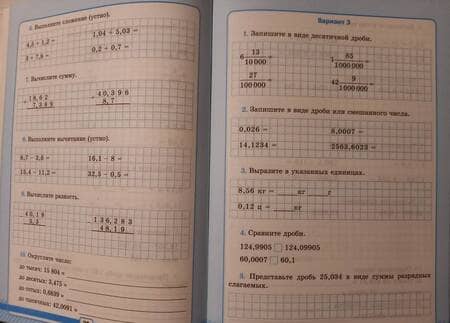 6. Выполните сложение (устно).
4,5 + 1,2 = 1,04 + 5,03 =
3 + 7,8 = 0,2 + 0,7 =
7. Вычислите сумму.
+ 18,62 + 40,396
7,389 8,7
8. Выполните вычитание (устно).
8,7 − 3,6 = 16,1 − 8 =
15,4 − 11,2 = 32,5 − 0,5 =
9. Вычислите разность.
40,19 136,283
3,5 48,19
10. Округлите числа:
до тысяч: 15 804 ≈
до десятых: 3,475 ≈
до сотых: 0,6639 ≈
до тысячных: 42,0091 ≈
Вариант 3
1. Запишите в виде десятичной дроби.
6 13/10 000 = 1 85/1 000 000 =
27/100 000 = 42 9/1 000 000 =
2. Запишите в виде дроби или смешанного числа.
0,026 = 8,0007 =
14,1234 = 2563,6023 =
3. Выразите в указанных единицах.
8,56 кг = ____ кг ____ г
0,12 ц = ____ кг
4. Сравните дроби.
124,9905 □ 124,09905
60,0007 □ 60,1
5. Представьте дробь 25,034 в виде суммы разрядных
слагаемых.